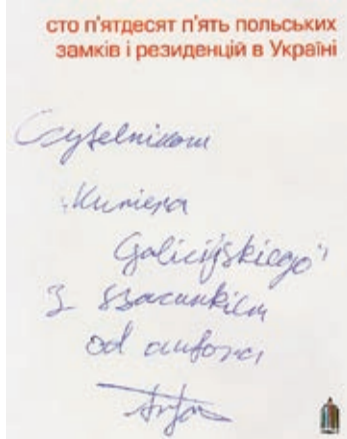 сто п'ятдесят п'ять польських
замків і резиденцій в Україні
Czytelnikom
„Kuriera
Galicyjskiego”
z szacunkiem
od autora